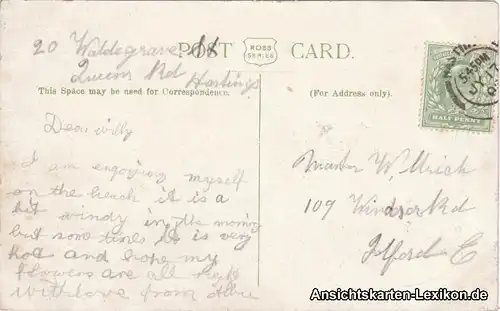 20 Waldegrave St
Queens Rd
Hastings
POST CARD.
ROSS
SERIES
This Space may be used for Correspondence.
(For Address only).
HALF PENNY
Dear willy
I am engoying myself
on the beach it is a
bit windy in the morning
but some times it is very
hot and hope my
flowers are all right
with love from
Master W.
109 Windsor Rd
Ilford E
Ansichtskarten-Lexikon.de